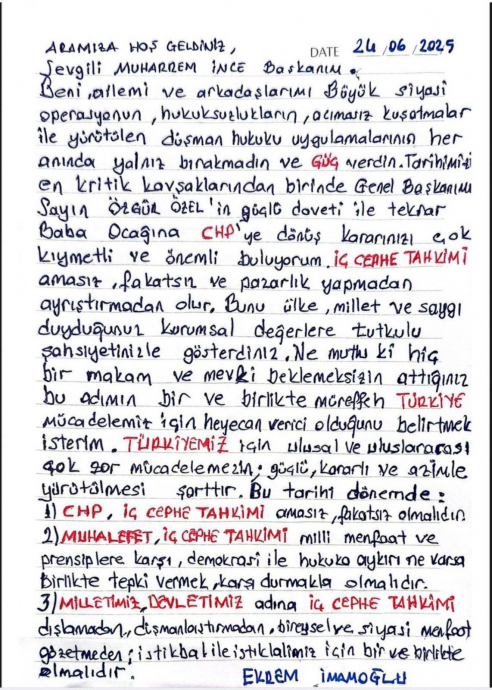 ARAMIZA HOŞ GELDİNİZ,
DATE 24/06/2025
Sevgili MUHARREM İNCE Başkanım.
Beni, ailemi ve arkadaşlarımı Büyük siyasi
operasyonun, hukuksuzlukların, acımasız kuşatmalar
ile yürütülen düşman hukuku uygulamalarının her
anında yalnız bırakmadın ve GÜÇ verdin. Tarihimizi
en kritik kavşaklarından birinde Genel Başkanımı
Sayın ÖZGÜR ÖZEL'in güçlü daveti ile tekrar
Baba Ocağına CHP'ye dönüş kararınızı çok
kıymetli ve önemli buluyorum. İÇ CEPHE TAHKİMİ
amasız, fakatsız ve pazarlık yapmadan
ayrıştırmadan olur. Bunu ülke, millet ve saygı
duyduğunuz kurumsal değerlere tutkulu
şahsiyetinizle gösterdiniz. Ne mutlu ki hiç
bir makam ve mevki beklemeksizin attığınız
bu adımın bir ve birlikte müreffeh TÜRKİYE
mücadelemiz için heyecan verici olduğunu belirtmek
isterim. TÜRKİYEMİZ için ulusal ve uluslararası
çok zor mücadelemizin; güçlü, kararlı ve azimle
yürütülmesi şarttır. Bu tarihi dönemde:
1) CHP, İÇ CEPHE TAHKİMİ amasız, fakatsız olmalıdır.
2) MUHALEFET, İÇ CEPHE TAHKİMİ milli menfaat ve
prensiplere karşı, demokrasi ile hukuka aykırı ne varsa
birlikte tepki vermek, karşı durmakla olmalıdır.
3) MİLLETİMİZ, DEVLETİMİZ adına İÇ CEPHE TAHKİMİ
dışlamadan, düşmanlaştırmadan, bireysel ve siyasi menfaat
gözetmeden; istikbal ile istiklalimiz için bir ve birlikte
olmalıdır.
EKREM İMAMOĞLU